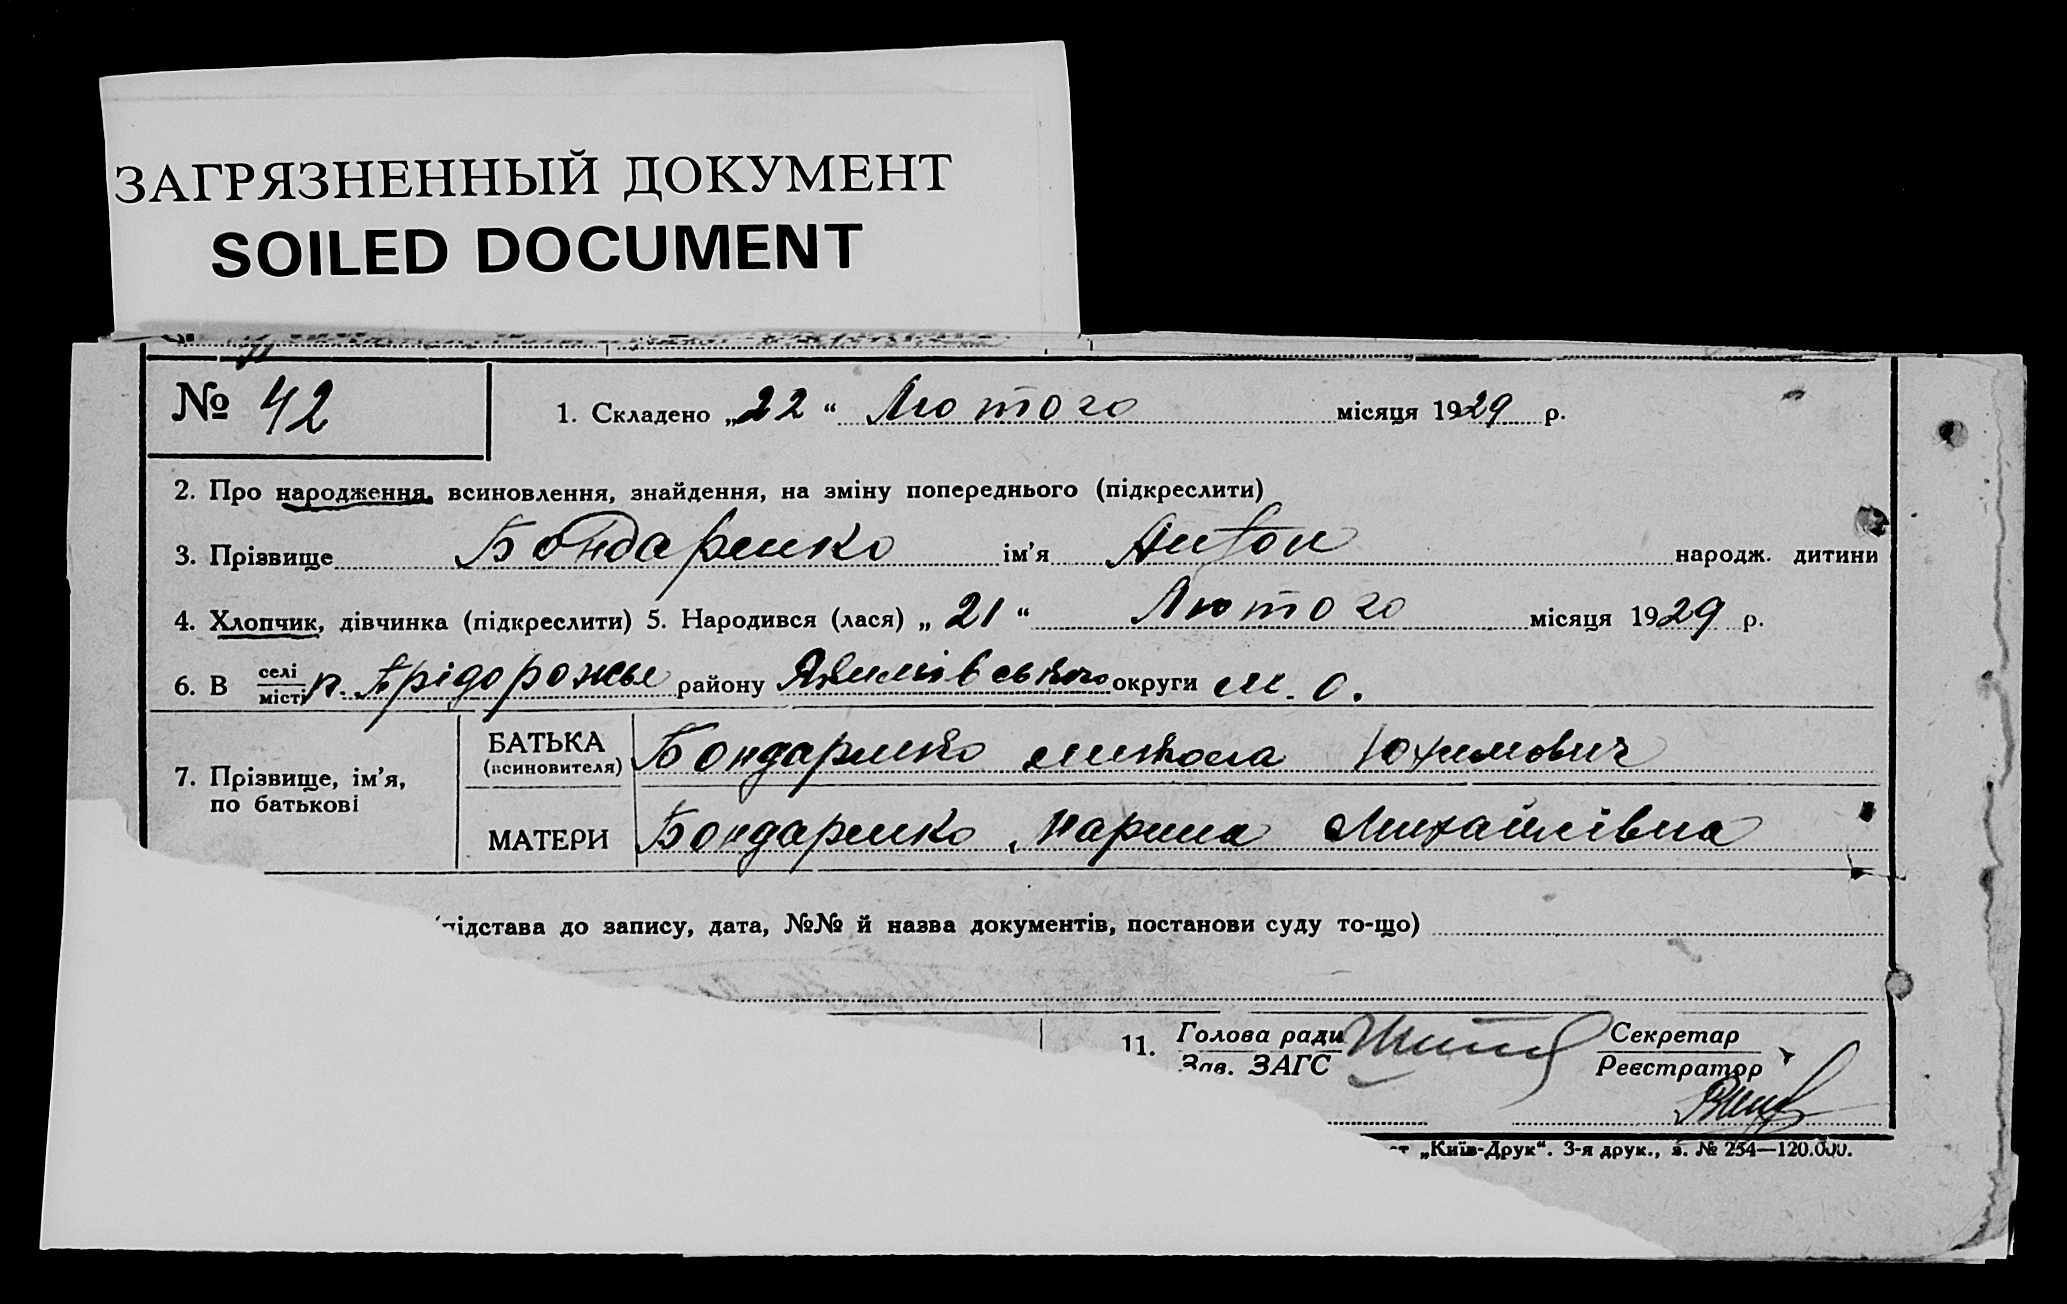 ЗАГРЯЗНЕННЫЙ ДОКУМЕНТ
SOILED DOCUMENT
№ 42
1. Складено „22“ Лютого місяця 1929 р.
2. Про народження, всиновлення, знайдення, на зміну попереднього (підкреслити)
3. Прізвище Бондаренко ім'я Антон народж. дитини
4. Хлопчик, дівчинка (підкреслити) 5. Народився (лася) „21“ Лютого місяця 1929 р.
6. В селі місті п. Прідорожье району Якимівського округи М. О.
7. Прізвище, ім'я, по батькові
БАТЬКА (всиновителя) Бондаренко Микола Юхимович
МАТЕРИ Бондаренко Марина Михайлівна
підстава до запису, дата, №№ й назва документів, постанови суду то-що)
11. Голова ради Секретар
Зав. ЗАГС Реєстратор
„Київ-Друк“. 3-я друк., з. № 254—120.000.